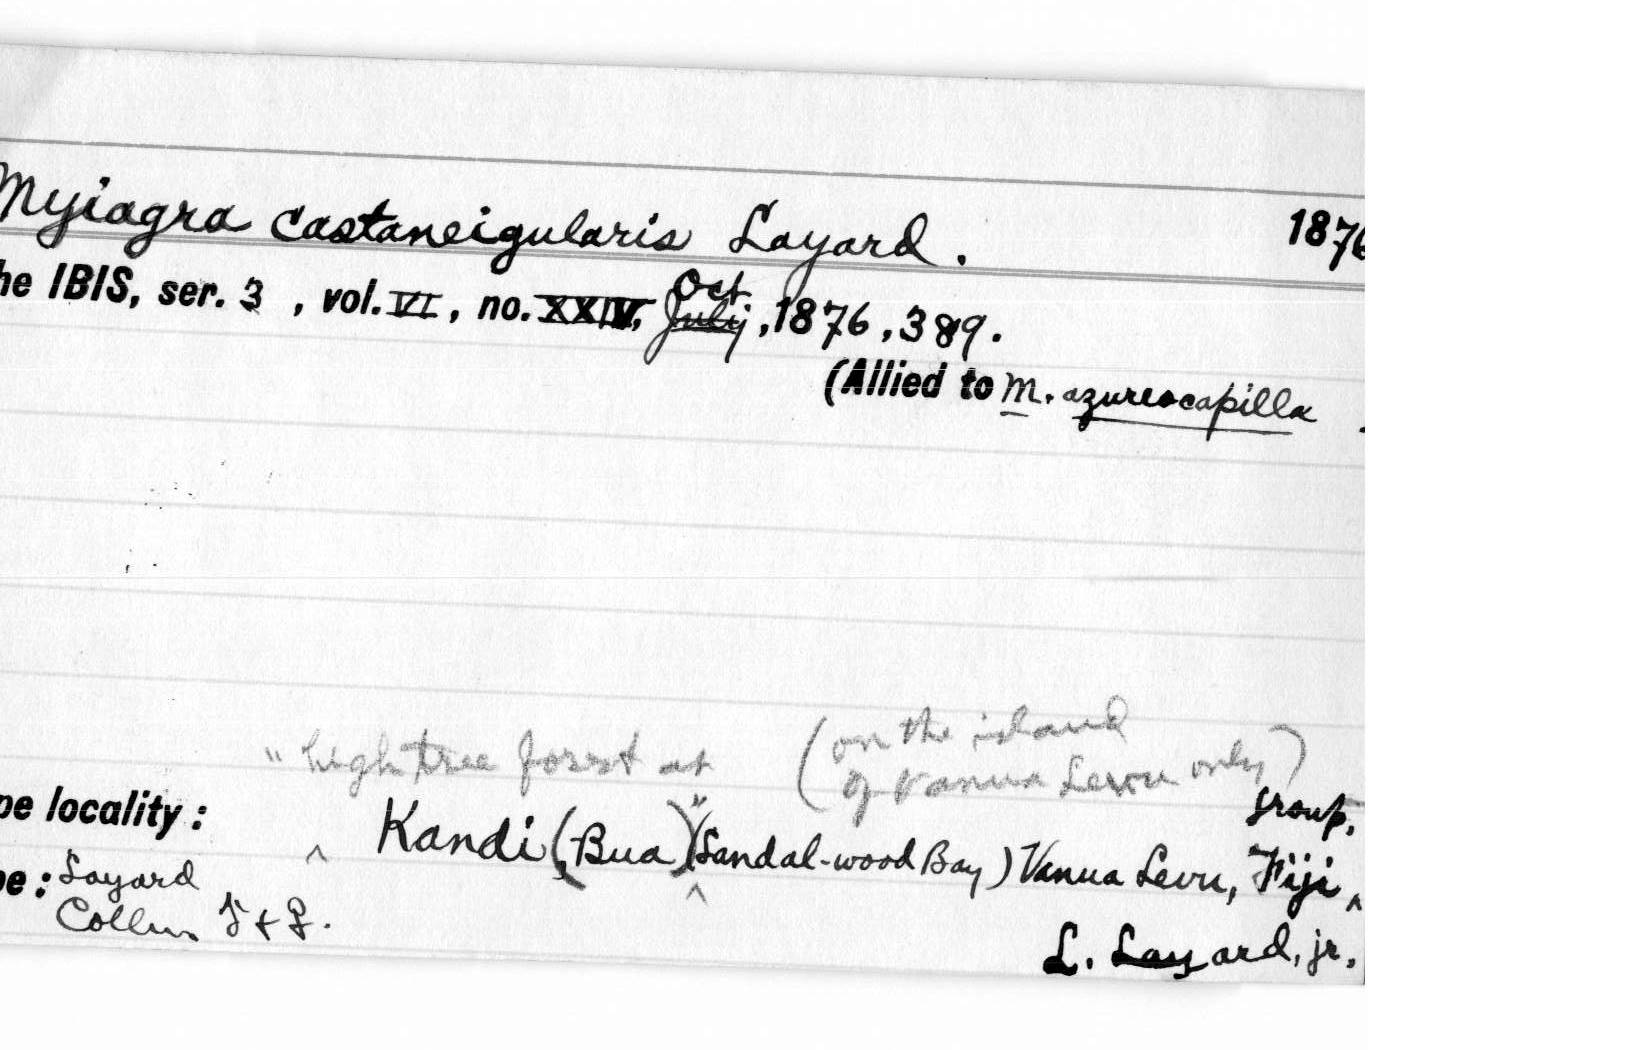 Myiagra castaneigularis Layard. 1876
he IBIS, ser. 3, vol. VI, no. XXIV, July Oct, 1876, 389.
(Allied to M. azureocapilla .
"high tree forest at (on the island
of Vanua Levu only)
pe locality: Kandi (Bua)" (Sandal-wood Bay) Vanua Levu, Fiji group,
pe: Layard
Colln ♂ + ♀.
L. Layard, jr.